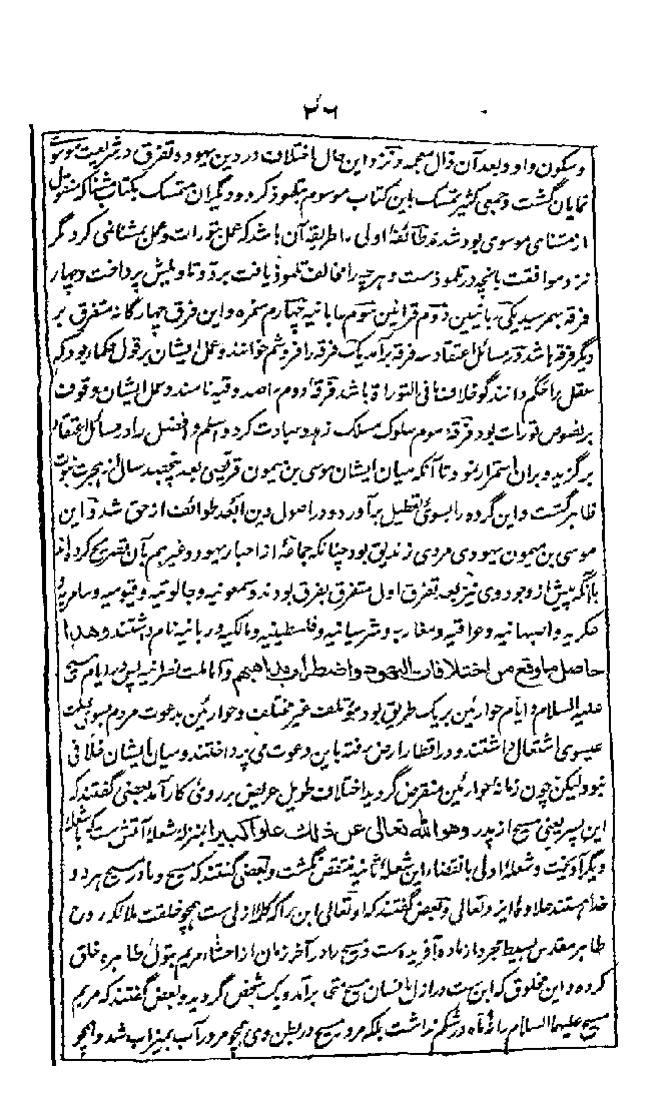 ۲۶
وسکون واو و بعد آن ذال معجمه و نزد این حال اختلاف در دین یهود و تفرق در شریعت موسوی
نمایان گشت و جمعی کثیر متمسک باین کتاب موسوم بتلموذ کرد و دیگران متمسک بکتاب مشنا که منقول
از مشنای موسوی بود شدند طائفهٔ اولی را طریقه آن باشد که عمل بتورات و عمل بمشنامی کرد گر
نزد موافقت بانچه در تلموذ ست و هر چه را مخالف تلموذ یافت برد و تاویلش پرداخت و چهار
فرقه بهمرسید یکی ربانیین دوم قرائین سوم عابانیه چهارم سمره و این فرق چهارگانه متفرق بر
دیگر فرقه باشد و در مسائل اعتقاد سه فرقه برآمد یک فرقه را فروشم خوانند و عمل ایشان بر قول حکما بود که
عقل را حکم دانند گو خلاف ما فی التوراة باشد فرقهٔ دوم را صدوقیه نامند و عمل ایشان و قوت
بر نصوص تورات بود فرقهٔ سوم سلوک مسلک زهد و عبادت کرد و اسلم و افضل را در مسائل اعتقاد
برگزید و بران استمرار نمود تا آنکه میان ایشان موسی بن میمون قرطبی بعد پنجصد سال از هجرت نبوت
ظاهر گشت و این گروه را بسوی تعطیل برآورد و در اصول دین ابعد طوائف از حق شد و این
موسی بن میمون یهودی مردی زندیق بود چنانکه جماعهٔ از احبار یهود و غیرهم بآن تصریح کرده اند
باآنکه پیش از وجود وی نیز بعد تفرق اول متفرق بفرق بودند و سمعونیه و جالوتیه و فیومیه و سامریه و
عکبریه و اصبهانیه و عراقیه و مغاربه و شرسیانیه و فلسطینیه و مالکیه و ربانیه نام داشتند و هذا
حاصل ما وقع من اختلافات الیهود و اضطراب مذاهبهم و اما ملت نصرانیه پس در ایام مسیح
علیه السلام و ایام حوارئین بر یک طریق بود مؤتلف غیر مختلف و حوارئین بدعوت مردم بسوی ملت
عیسوی اشتغال داشتند و در اقطار ارض رفته باین دعوت می پرداختند و میان ایشان خلافی
نبود لیکن چون زمانهٔ حوارئین منقرض گردید اختلاف طویل عریض بر روی کار آمد بعضی گفتند که
این پسر یعنی مسیح از پدر و هو الله تعالی عن ذلک علوا کبیرا بمنزلهٔ شعلهٔ آتش ست که با شعلهٔ
دیگر آویخت و شعلهٔ اولی بانقضاء این شعلهٔ ثانیه منتقض نگشت و بعضی گفتند که مسیح و مادر مسیح هر دو
خدا هستند علاوه ایزد تعالی و بعضی گفتند که او تعالی ابن را که کلام ازلی ست همچو خلقت ملائکه روح
طاهر مقدس بسیط مجرد از ماده آفریده ست و مسیح را در آخر زمان از احشاء مریم بتول طاهره خلق
کرده و این مخلوق که ابن ست در ازل بانسان مسیح متحد برآمد و یک شخص گردید و بعضی گفتند که مریم
مسیح علیهما السلام را نُه ماه در شکم نداشت بلکه مرور مسیح در بطن وی همچو مرور آب بمیزاب شد و همچو